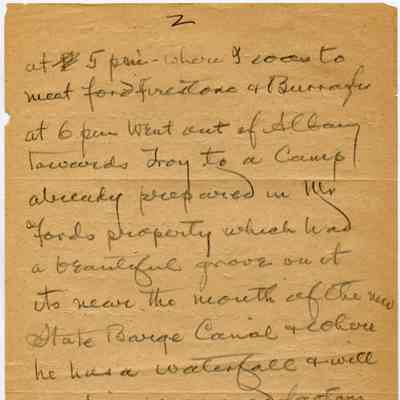 2
at 5 pm - where I was to
meet Ford Firestone & Burroughs
at 6 pm Went out of Albany
Towards Troy to a Camp
already prepared in Mr
Fords property which had
a beautiful grove on it
its near the mouth of the new
State Barge Canal & where
he has a waterfall & will